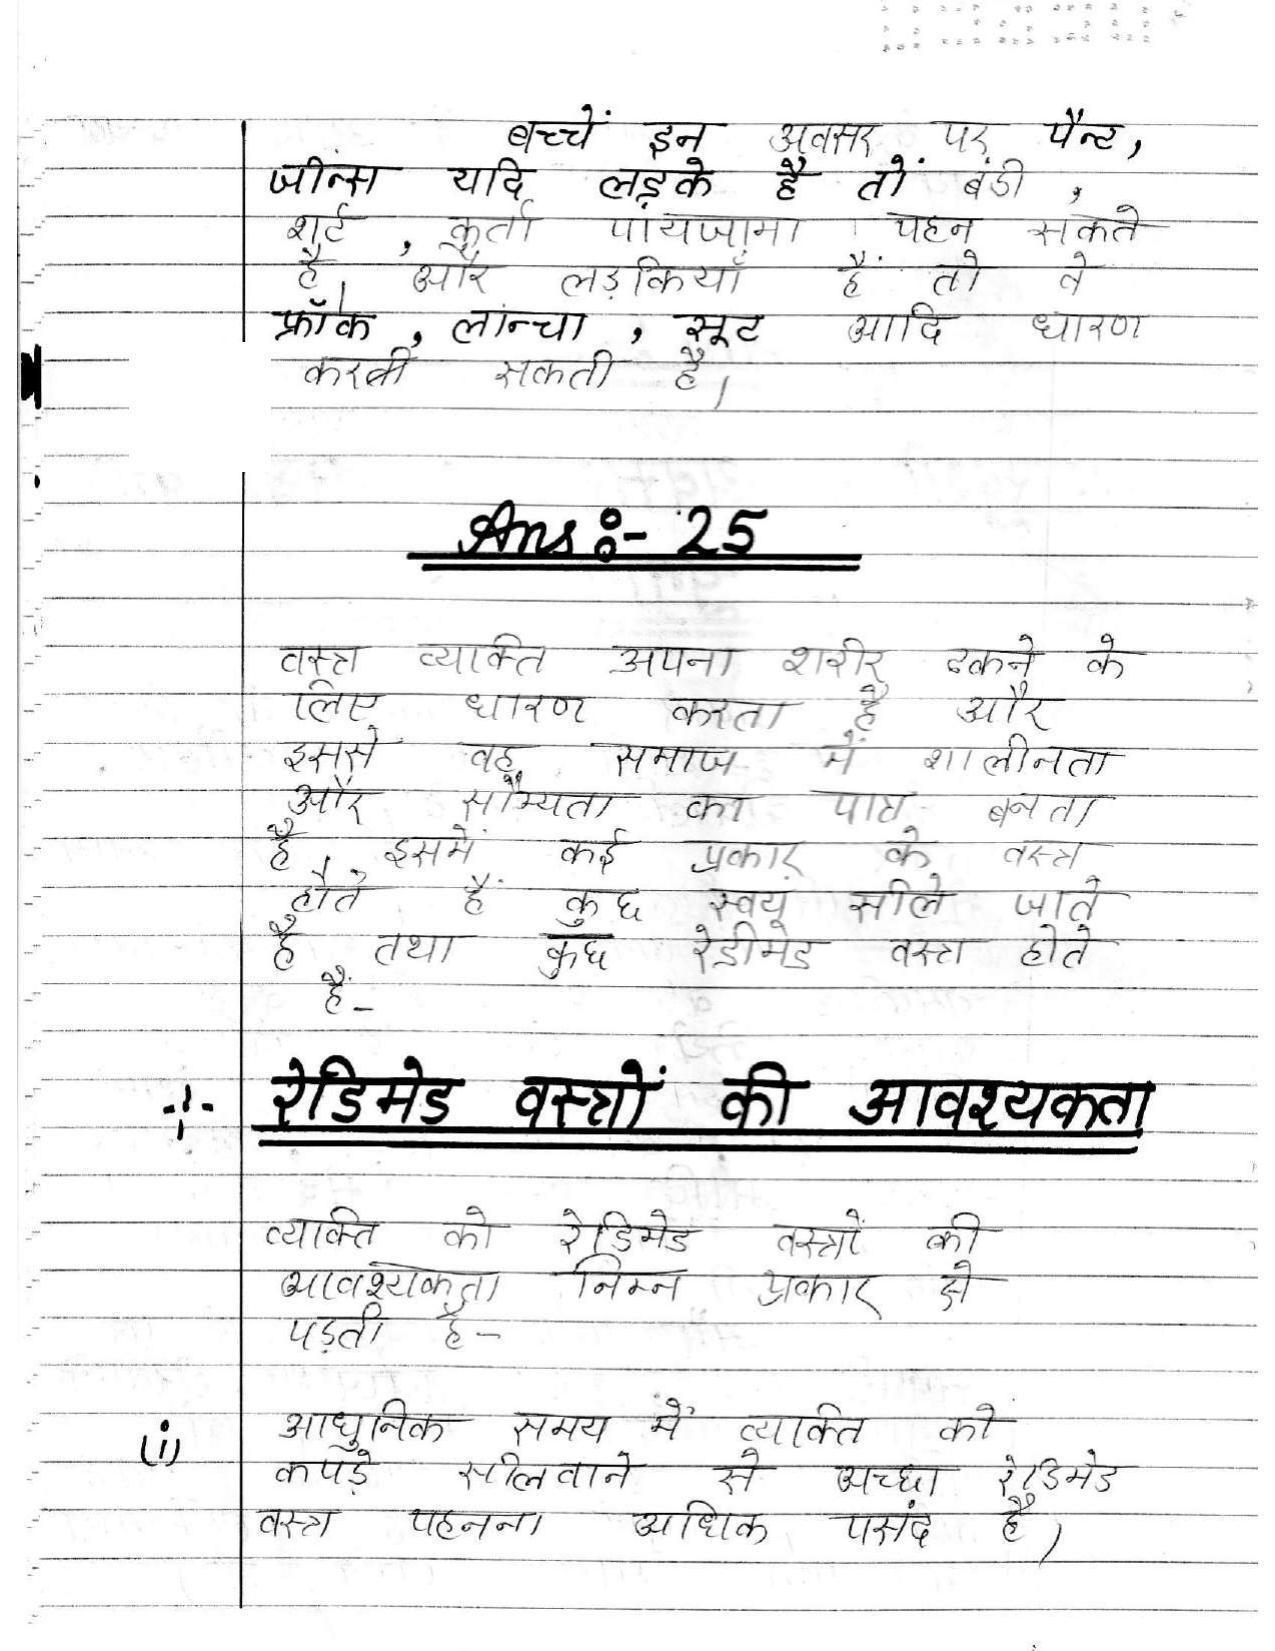 बच्चें इन अवसर पर पैन्ट,
जीन्स यदि लड़के है तों बंडी ,
शर्ट , कुर्ता पांयजामा पहन सकते
है, और लड़कियाँ हैं तो वे
फ्रॉक , लांन्चा , सूट आदि धारण
सकती है,
Ans :- 25
वस्त्र व्याक्ति अपना शरीर ढकने के
लिए धारण करता है और
इससे वह समाज में शालीनता
और सौम्यता का पात्र बनता
है, इसमें कई प्रकार के वस्त्र
होते हैं कुछ स्वयं सीले जाते
है तथा कुछ रेडीमेड वस्त्र होते
हैं-
रेडिमेड वस्त्रों की आवश्यकता
व्याक्ति को रेडिमेड वस्त्रों की
आवश्यकता निम्न प्रकार से
पड़ती है-
(i) आधुनिक समय में व्याक्ति को
कपड़े सीलवाने से अच्छा रेडिमेड
वस्त्र पहनना अधिक पसंद है,